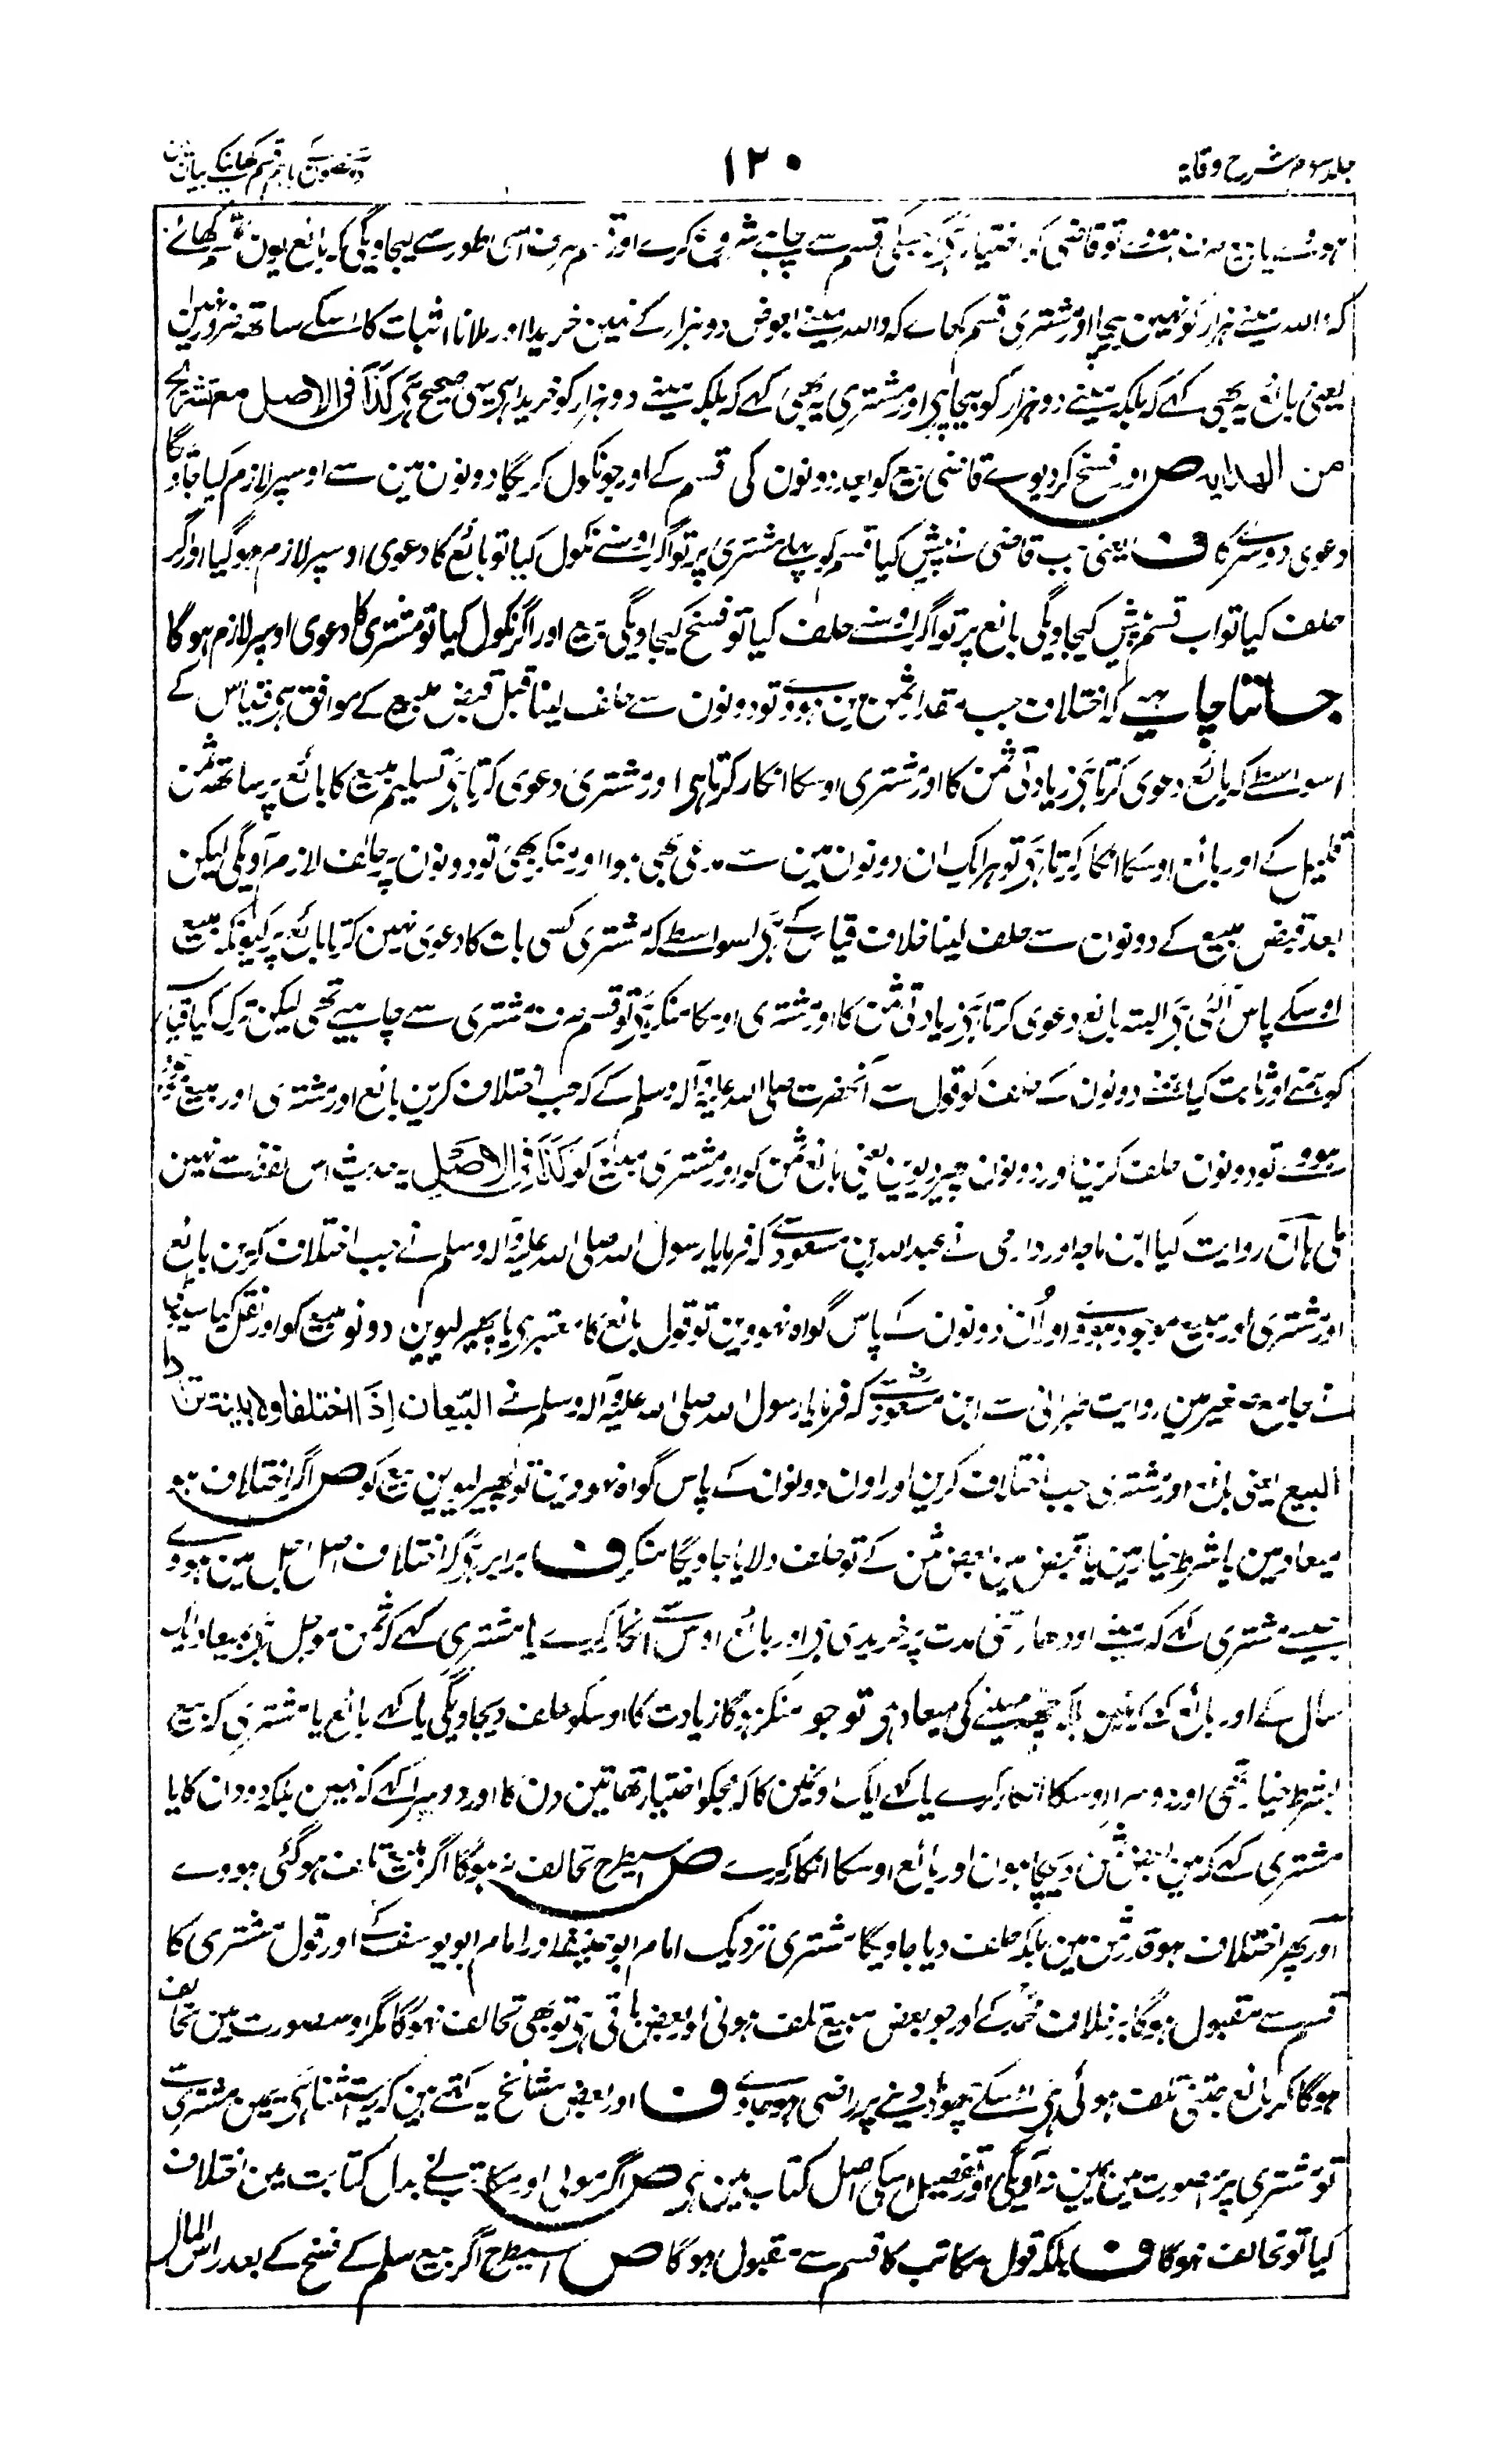 جلد سوم شرح وقایہ
۱۲۰
دو شخصوں کی باہم قسم کھانیکے بیان مین
تو قاضی کو اختیار ہی جسکی قسم سے چاہے شروع کرے اور قسم صرف اسی طور سے لیجاویگی کہ بائع یون قسم کھائے
کہ واللہ مینے ہزار کو نہین بیچا اور مشتری قسم کھاے کہ واللہ مینے بعوض دو ہزار کے نہین خریدا اور ملانا اثبات کا اسکے ساتھ ضرور نہین
یعنی بائع یہ بھی کہے کہ بلکہ مینے دو ہزار کو بیچا ہی اور مشتری یہ بھی کہے کہ بلکہ مینے دو ہزار کو خریدا ہی یہی صحیح ہی کذا فی الاصل مع تشریح
من الهدایہ ص اور فسخ کر دیوے قاضی بیع کو بعد دونون کی قسم کے اور جو نکول کریگا دونون مین سے اوسپر لازم کیا جاویگا
دعوی دوسرے کا ف یعنی جب قاضی نے پیش کیا قسم کو پہلے مشتری پر تو اگر اوسنے نکول کیا تو بائع کا دعوی اوسپر لازم ہو گیا اور اگر
حلف کیا تو اب قسم پیش کیجاویگی بائع پر تو اگر اوسنے حلف کیا تو فسخ کیجاویگی بیع اور اگر نکول کیا تو مشتری کا دعوی اوسپر لازم ہوگا
جاننا چاہیے کہ اختلاف جب مقدار ثمن مین ہووے تو دونون سے حلف لینا قبل قبض مبیع کے موافق ہی قیاس کے
اسواسطے کہ بائع دعوی کرتا ہی زیادتی ثمن کا اور مشتری اوسکا انکار کرتا ہی اور مشتری دعوی کرتا ہی تسلیم مبیع کا بائع پر ساتھ ثمن
قلیل کے اور بائع اوسکا انکار کرتا ہی تو ہر ایک ان دونون مین سے مدعی بھی ہوا اور منکر بھی تو دونون پر حلف لازم آویگی لیکن
بعد قبض مبیع کے دونون سے حلف لینا خلاف قیاس کے ہی اسواسطے کہ مشتری کسی بات کا دعوی نہین کرتا بائع پر کیونکہ مبیع
اوسکے پاس آگئی ہی البتہ بائع دعوی کرتا ہی زیادتی ثمن کا اور مشتری اوسکا منکر ہی تو قسم صرف مشتری سے چاہیے تھی لیکن ترک کیا قیاس
کو ہمنے اور ثابت کیا ہمنے دونون کے حلف کو قول سے آنحضرت صلی اللہ علیہ وآلہ وسلم کے کہ جب اختلاف کرین بائع اور مشتری اور مبیع موجود
ہووے تو دونون حلف کرین اور دونون پھیر دیوین یعنی بائع ثمن کو اور مشتری مبیع کو کذا فی الاصل یہ حدیث اس لفظ سے نہین
ملی ہان روایت کیا ابن ماجہ اور دارمی نے عبداللہ بن مسعود سے کہ فرمایا رسول اللہ صلی اللہ علیہ وآلہ وسلم نے جب اختلاف کرین بائع
اور مشتری اور مبیع موجود ہووے اور اُن دونون کے پاس گواہ نہووین تو قول بائع کا معتبر ہی یا پھیر لیوین دونو مبیع کو اور نقل کیا سیوطی
نے جامع صغیر مین روایت طبرانی سے ابن مسعود سے کہ فرمایا رسول اللہ صلی اللہ علیہ وآلہ وسلم نے البیعان إذا اختلفا ولا بینة ترادا
البیع یعنی بائع اور مشتری جب اختلاف کرین اور اون دونون کے پاس گواہ نہووین تو پھیر لیوین بیع کو ص اگر اختلاف ہو
میعاد مین یا شرط خیار مین یا قبض مین بعض ثمن کے تو حلف دلایا جاویگا منکر ف برابر ہی کہ اختلاف اصل اجل مین ہووے
جیسے مشتری کہے کہ مینے اودھار اتنی مدت پر خریدی ہی اور بائع اوس سے انکار کرے یا مشتری کہے کہ ثمن موجل ہی بمیعاد ایک
سال کے اور بائع کہے کہ نہین بلکہ چھہ مہینے کی میعاد ہی تو جو منکر ہوگا زیادت کا اوسکو حلف دیجاویگی یا کہے بائع یا مشتری کہ بیع
بشرط خیار تھی اور دوسرا اوسکا انکار کرے یا کہے ایک اونمین کا کہ مجکو اختیار تھا تین دن کا اور دوسرا کہے کہ نہین بلکہ دو دن کا یا
مشتری کہے کہ مین بعض ثمن دیچکا ہون اور بائع اوسکا انکار کرے ص اسیطرح تحالف نہ ہوگا اگر مبیع تلف ہو گئی ہووے
اور پھر اختلاف ہو قدر ثمن مین بلکہ حلف دیا جاویگا مشتری نزدیک امام ابو حنیفہ اور امام ابو یوسف کے اور قول مشتری کا
قسم سے مقبول ہوگا بخلاف محمد کے اور جو بعض مبیع تلف ہوئی اور بعض باقی ہی تو بھی تحالف نہوگا مگر اوس صورت مین تحالف
ہوگا کہ بائع جتنی تلف ہوئی ہی اوسکے چھوڑ دینے پر راضی ہوجاوے ف اور بعض مشائخ یہ کہتے ہین کہ یہ استثنا ہی یمین مشتری سے
تو مشتری پر اس صورت مین یمین نہ آویگی اور تفصیل اسکی اصل کتاب مین ہی ص اگر مولی اور مکاتب نے بدل کتابت مین اختلاف
کیا تو تحالف نہوگا ف بلکہ قول مکاتب کا قسم سے مقبول ہوگا ص اسیطرح اگر بیع سلم کے فسخ کے بعد راس المال